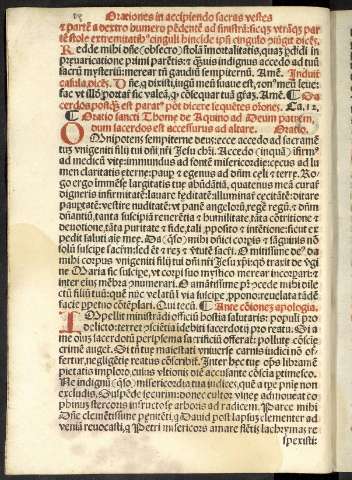 Orationes in accipiendo sacras vestes
⁊ partē a dextro humero pēdentē ad sinistrā: sicq̄ʒ vtrāq̄ʒ par
tē stole extremitatib⁹ cinguli hincide ip̄ꝫ cingulo iūgit dicēs.
Redde mihi dn̄e (obsecro) stolā īmortalitatis, quaʒ ꝑdidi in
p̄uaricatione primi parētis: ⁊ q̄uis indignus accedo ad tuū
sacrū mysteriū: merear tn̄ gaudiū sempiternū. Amē. Induit
casulā, dicēs. Dn̄e, q̄ dixisti, iugū meū suaue est, ⁊ on⁹ meū leue:
fac vt illō portare sic valeā, ꝙ cōsequar tuā grām. Amē. ¶ Sa
cerdos postq̄ʒ est parat⁹ pōt dicere seq̄uētes or̄ones. Ca. 12.
¶ Oratio sancti Thome de Aquino ad Deum patrem,
dum sacerdos est accessurus ad altare. Oratio.
OMnipotens sempiterne deus: ecce accedo ad sacramē
tuʒ vnigeniti filij tui dn̄i nr̄i Jesu ch̄ri. Accedo (inquā) ifirm⁹
ad medicū vite: immundus ad fontē misericordie: cecus ad lu
men claritatis eterne: paup̄ ⁊ egenus ad dn̄m celi ⁊ terre. Ro
go ergo immēse largitatis tue abūdātiā, quatenus meā curaf
digneris infirmitatē: lauare feditatē: illuminaf cecitatē: ditare
paupertatē: vestire nuditatē: vt panē angelorū, regē regū: ⁊ dn̄m
dn̄antiū, tanta suscipiā reuerētia ⁊ humilitate, tāta cōtritione ⁊
devotione, tāta puritate ⁊ fide, tali ꝓposito ⁊ intētione: sicut ex
pedit saluti aīe mee. Da (q̄so) mihi dn̄ici corpis ⁊ sāguinis nō
solū suscipe sacr̄mētū: s̄ ⁊ rez ⁊ v̄tutē sacr̄i. O mitissime de⁹ da
mihi corpus vnigeniti filij tui dn̄i nr̄i Jesu xp̄i: qd̄ traxit de v̄gi
ne Maria sic suscipe, vt corpi suo mystico merear incorpari: ⁊
inter ei⁹ mēbra ꝯnumerari. O amātissime pr̄: ꝯcede mihi dile
ctū filiū tuū: quē nūc velatū ī via suscipe ꝓpono: reuelata tādē
facie ꝑpetuo cōtēplari. Qui tecū. ¶ Ante cōionez apologia.
IMpellit ministrādi officiū hostia salutaris: populi pro
delicto: terret ꝯsciētia idebiti sacerdotij pro reatu. Si a
me oīuʒ sacerdotū persolema sacrificiū offerat: pollute cōscie
crimē auget. Si tn̄ tue maiestati vniuerse carnis iudici nō of
fertur, negligētie reatus cōscribit. Jnter hec tue opis libramē
pietatis imploro, cuius vltionē diē accusante cōscia ꝑtimesco.
Ne indignū (q̄so) misericordia tua iudices, quē a tꝑe pn̄ie non
excludis. Suspēde securim: donec cultor vineę admoueat co
phinuʒ stercoris infructuosę arboris ad radicem. Parce mihi
Dn̄e clementissime peniteti, q̄ Dauid post lapsuʒ clementer ad
veniā reuocasti, q̄ Petri misericors amare flētis lachrymas re
spexisti: